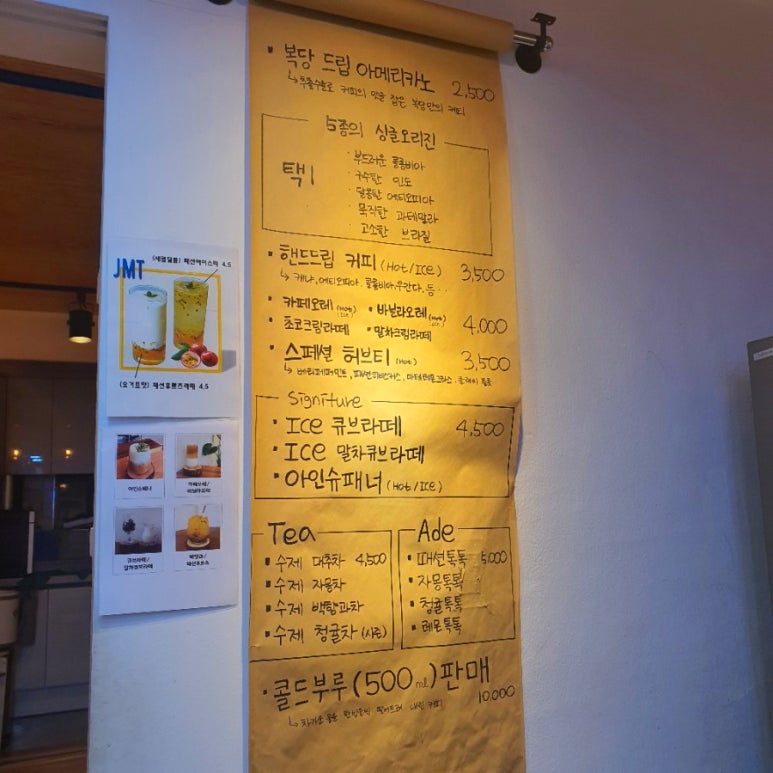 복당 드립 아메리카노 2,500
커피의 맛을 담은 복당만의 커피
5종의 싱글오리진
택1
· 부드러운 콜롬비아
· 구수한 인도
· 달콤한 에티오피아
· 묵직한 과테말라
· 고소한 브라질
핸드드립 커피 (Hot/Ice) 3,500
케냐, 에티오피아, 콜롬비아, 우간다, 등...
카페오레 (Hot/Ice) 바닐라오레 (Hot/Ice) 4,000
초코크림라떼 말차크림라떼
스페셜 허브티 (Hot) 3,500
Signiture
Ice 큐브라떼 4,500
Ice 말차큐브라떼
아인슈패너 (Hot/Ice)
Tea
수제 대추차 4,500
수제 자몽차
수제 백향과차
수제 청귤차
Ade
패션톡톡 5,000
자몽톡톡
청귤톡톡
레몬톡톡
콜드부루 (500ml) 판매 10,000
JMT
(새콤달콤) 패션에이스페 4.5
(요거트맛) 패션후룻츠라떼 4.5
아인슈패너
카페오레/
바닐라오레
큐브라떼/
말차큐브라떼